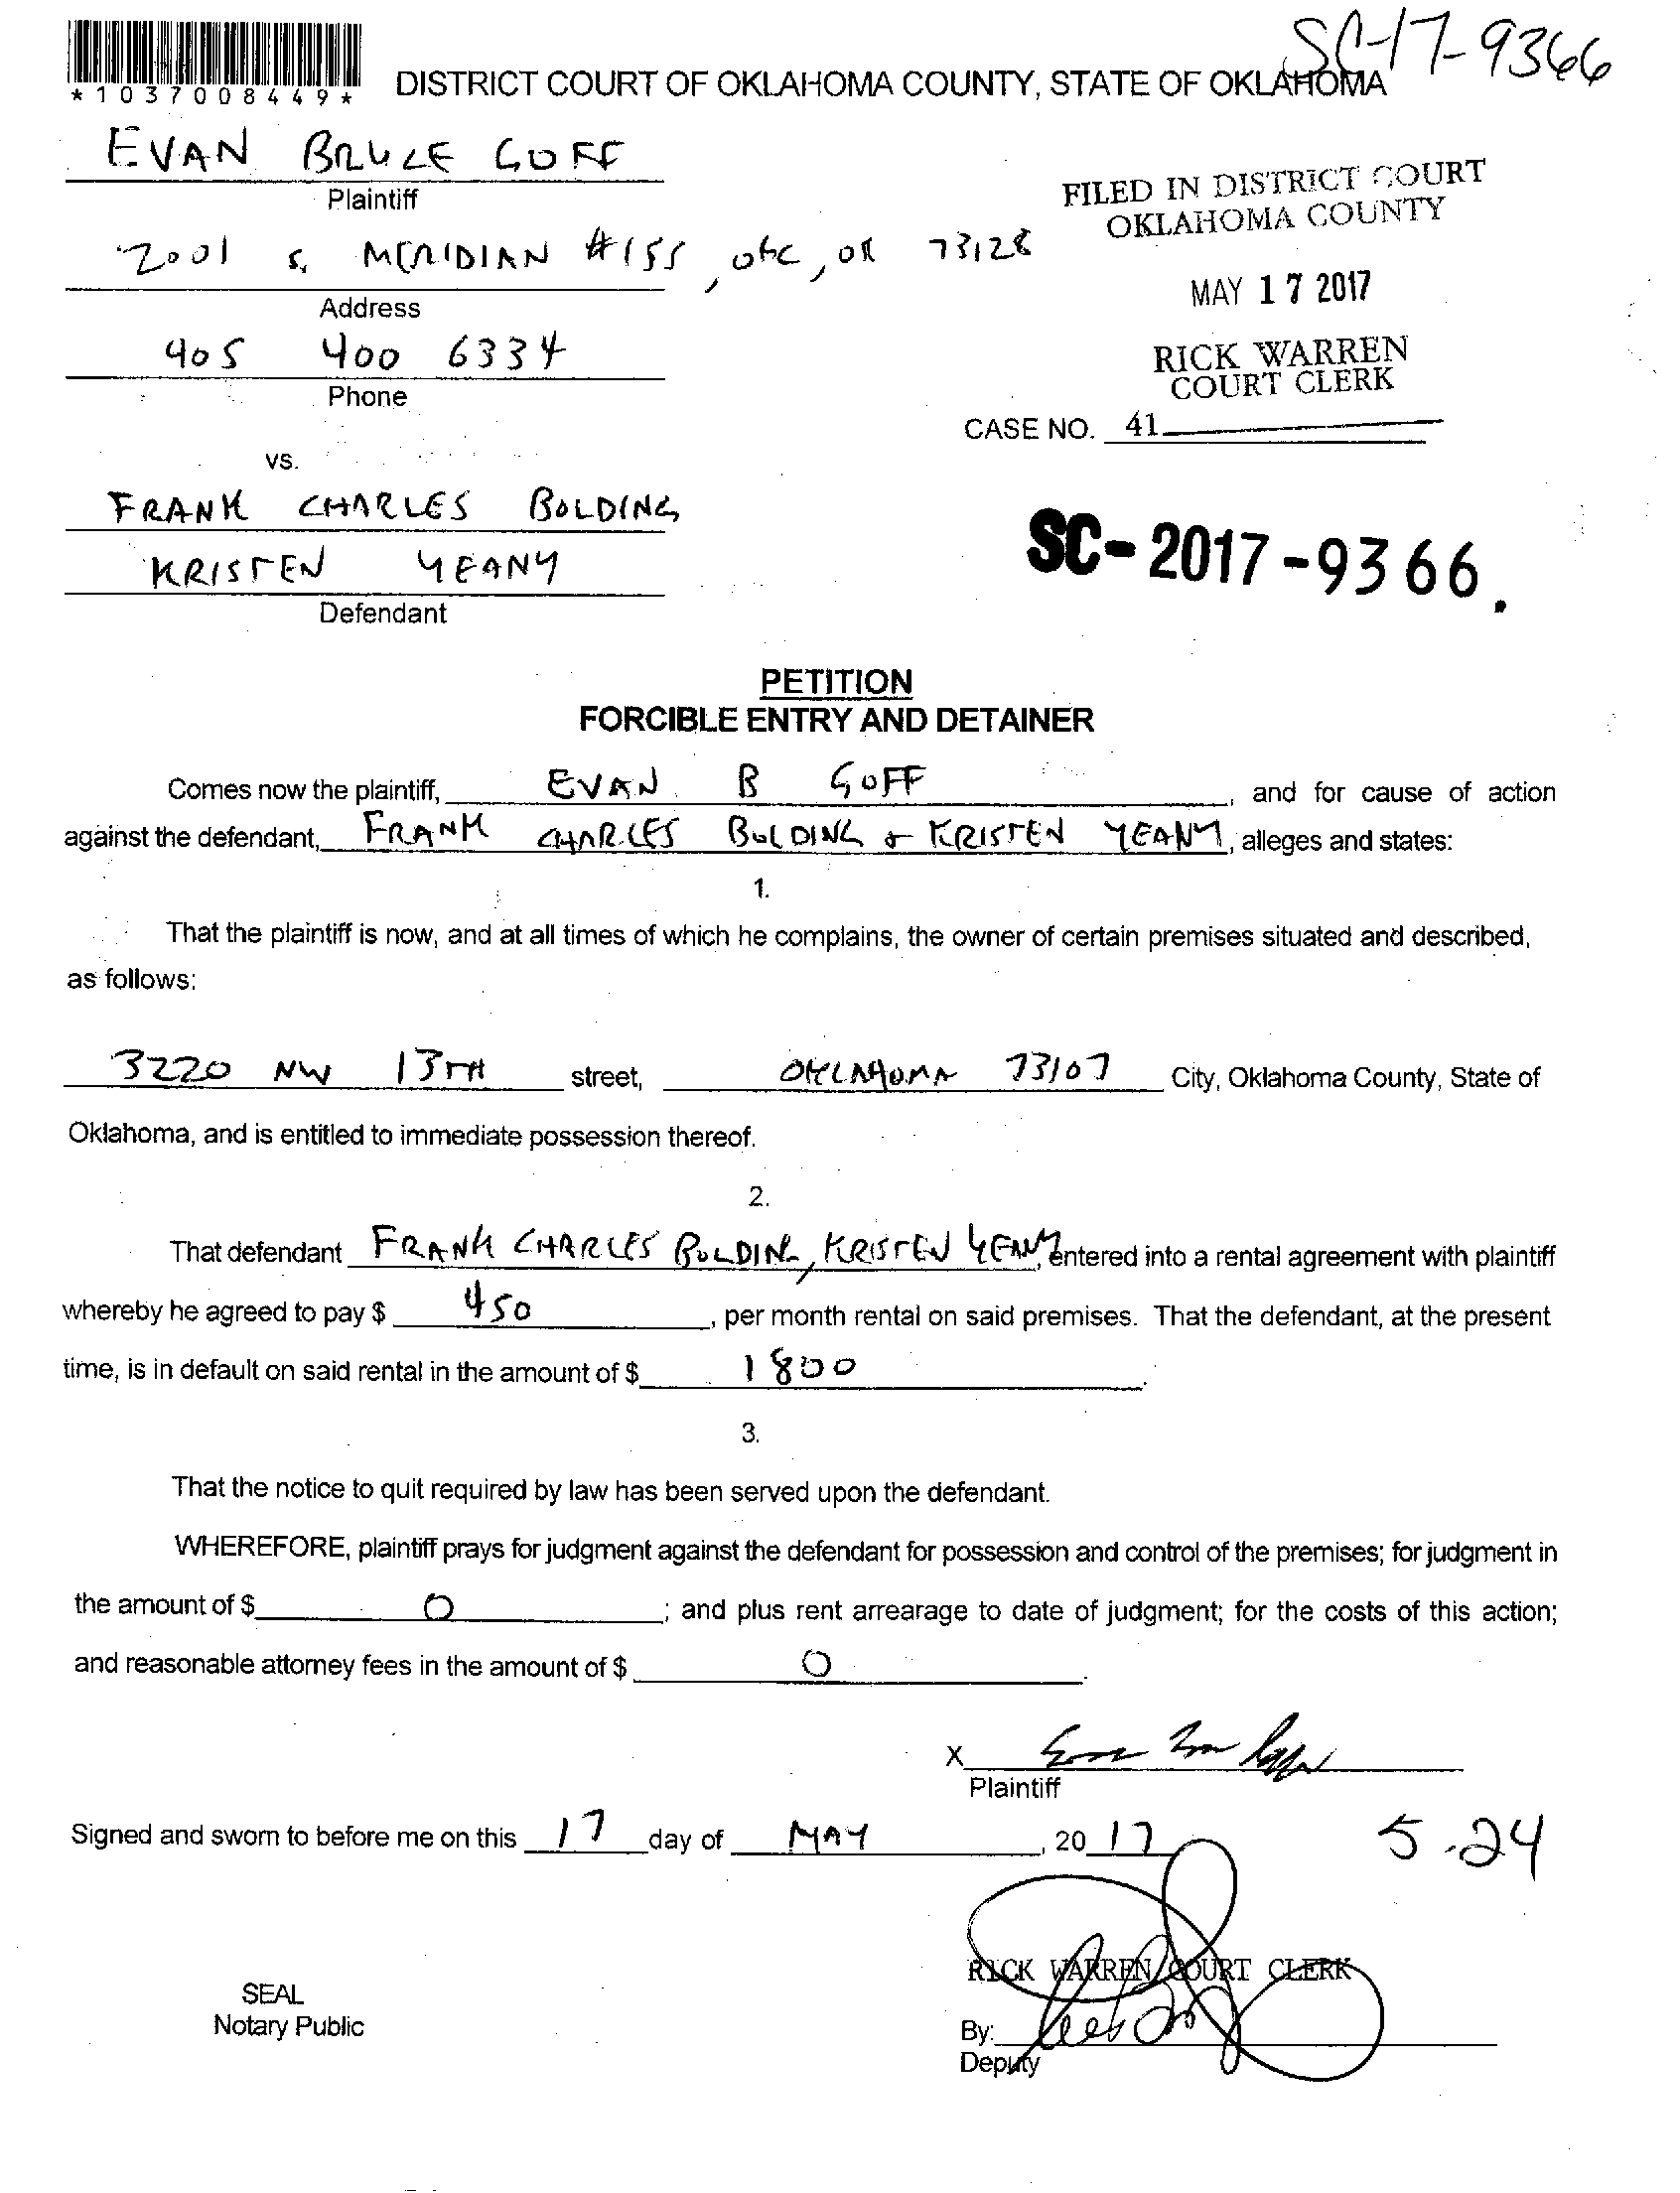 SC-17-9366
*1037008449*
DISTRICT COURT OF OKLAHOMA COUNTY, STATE OF OKLAHOMA
EVAN BRUCE GOFF
Plaintiff
FILED IN DISTRICT COURT
OKLAHOMA COUNTY
2001 S. MERIDIAN #155, OKC, OK 73128
Address
MAY 17 2017
405 400 6334
Phone
RICK WARREN
COURT CLERK
CASE NO. 41
vs.
FRANK CHARLES BOLDING
KRISTEN YEANY
Defendant
SC-2017-9366.
PETITION
FORCIBLE ENTRY AND DETAINER
Comes now the plaintiff, EVAN B GOFF, and for cause of action
against the defendant, FRANK CHARLES BOLDING & KRISTEN YEANY, alleges and states:
1.
That the plaintiff is now, and at all times of which he complains, the owner of certain premises situated and described,
as follows:
3220 NW 13TH street, OKLAHOMA 73107 City, Oklahoma County, State of
Oklahoma, and is entitled to immediate possession thereof.
2.
That defendant FRANK CHARLES BOLDING, KRISTEN YEANY, entered into a rental agreement with plaintiff
whereby he agreed to pay $ 450, per month rental on said premises. That the defendant, at the present
time, is in default on said rental in the amount of $ 1800.
3.
That the notice to quit required by law has been served upon the defendant.
WHEREFORE, plaintiff prays for judgment against the defendant for possession and control of the premises; for judgment in
the amount of $ 0; and plus rent arrearage to date of judgment; for the costs of this action;
and reasonable attorney fees in the amount of $ 0.
X
Plaintiff
Signed and sworn to before me on this 17 day of MAY, 2017
5-24
RICK WARREN, COURT CLERK
SEAL
Notary Public
By:
Deputy